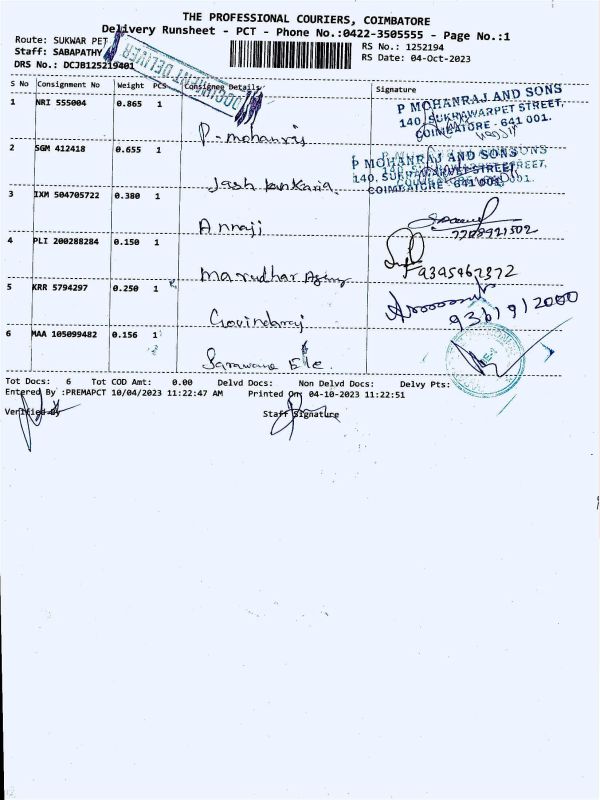 THE PROFESSIONAL COURIERS, COIMBATORE
Delivery Runsheet - PCT - Phone No.:0422-3505555 - Page No.:1
Route: SUKWAR PET
RS No.: 1252194
Staff: SABAPATHY
RS Date: 04-Oct-2023
DRS No.: DCJB125219401
DOCUMENT DELIVER
S No Consignment No Weight PCS Consignee Details Signature
1 NRI 555004 0.865 1 P-mohanraj
P MOHANRAJ AND SONS
140, SUKRAWARPET STREET,
COIMBATORE - 641 001.
2 SGM 412418 0.655 1 Jash Bankaria
P MOHANRAJ AND SONS
140, SUKRAWARPET STREET,
COIMBATORE - 641 001.
3 IXM 504705722 0.380 1 Annaji
7708921502
4 PLI 200288284 0.150 1 Marudhar Agency
9345967372
5 KRR 5794297 0.250 1 Govindaraj
9361912000
6 MAA 105099482 0.156 1 Sarawana Ele
Tot Docs: 6 Tot COD Amt: 0.00 Delvd Docs: Non Delvd Docs: Delvy Pts:
Entered By :PREMAPCT 10/04/2023 11:22:47 AM Printed On: 04-10-2023 11:22:51
Verified By Staff Signature